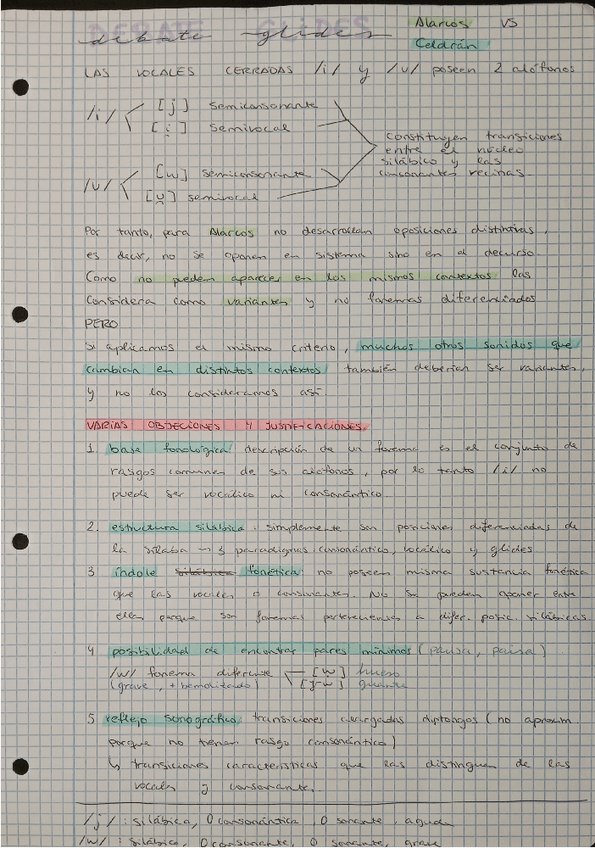 debate glides Alarcos vs
Celdrán
LAS VOCALES CERRADAS /i/ y /u/ poseen 2 alófonos
/i/ [j] semiconsonante
[i̯] semivocal
/u/ [w] semiconsonante
[u̯] semivocal
Constituyen transiciones
entre el núcleo
silábico y las
consonantes vecinas.
Por tanto, para Alarcos no desarrollan oposiciones distintivas,
es decir, no se oponen en sistema sino en el decurso.
Como no pueden aparecer en los mismos contextos las
considera como variantes y no fonemas diferenciados
PERO
Si aplicamos el mismo criterio, muchos otros sonidos que
cambian en distintos contextos también deberían ser variantes,
y no los consideramos así.
VARIAS OBJECIONES Y JUSTIFICACIONES
1. base fonológica: descripción de un fonema es el conjunto de
rasgos comunes de sus alófonos, por lo tanto /i/ no
puede ser vocálico ni consonántico
2. estructura silábica: simplemente son posiciones diferenciadas de
la sílaba → 3 paradigmas consonántico, vocálico y glides
3 índole silábica fonética: no poseen misma sustancia fonética
que las vocales o consonantes. No se pueden oponer entre
ellas porque son fonemas pertenecientes a difer. posic. silábicas.
4 posibilidad de encontrar pares mínimos (pausa, paisa)
/w/ fonema diferente [w] hueso
(grave, + bemolizado) guante
5 reflejo sonográfico: transiciones alargadas diptongos (no aproxim.
porque no tienen rasgo consonántico)
↳ transiciones características que las distinguen de las
vocales y consonante.
/j/: silábica, 0 consonántica, 0 sonante, aguda
/w/: silábico, 0 consonante, 0 sonante, grave